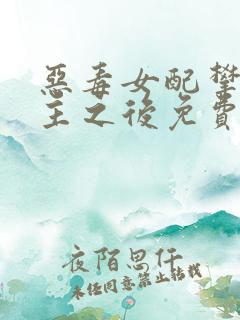 惡毒女配攀
主之後免費
夜陌思仟
未经同意禁止转载